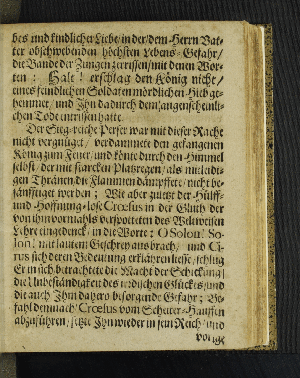 bes und kindlicher Liebe / in der / dem Herrn Vat-
ter obschwebenden höchsten Lebens-Gefahr /
die Bande der Zungen zerrissen / mit denen Wor-
ten : Halt ! erschlag den König nicht /
eines feindlichen Soldaten mördlichen Hieb ge-
hemmet / und Ihn dadurch dem augenscheinli-
chen Tode entrissen hatte.
Der Sieg-reiche Perser war mit dieser Rache
nicht vergnüget / verdammete den gefangenen
König zum Feuer / und könte durch den Himmel
selbst / der mit starcken Platzregen / als mitleidi-
gen Thränen / die Flammen dämpffete / nicht be-
sänfftiget werden : Wie aber zuletzt der Hülff-
und Hoffnung-lose Crœsus in der Gluth der
von ihm vormahls verspotteten des Weltweisen
Lehre eingedenck / in die Worte : O Solon ! So-
lon ! mit lautem Geschrey ausbrach / und Ci-
rus sich deren Bedeutung erklären liesse / schlug
Er in sich / betrachtete die Macht der Schickung /
die Unbeständigkeit des irdischen Glückes / und
die auch Ihm dahero besorgende Gefahr ; Be-
fahl demnach / Crœsus vom Scheiter-Hauffen
abzuführen / setzte Ihn wieder in sein Reich / und